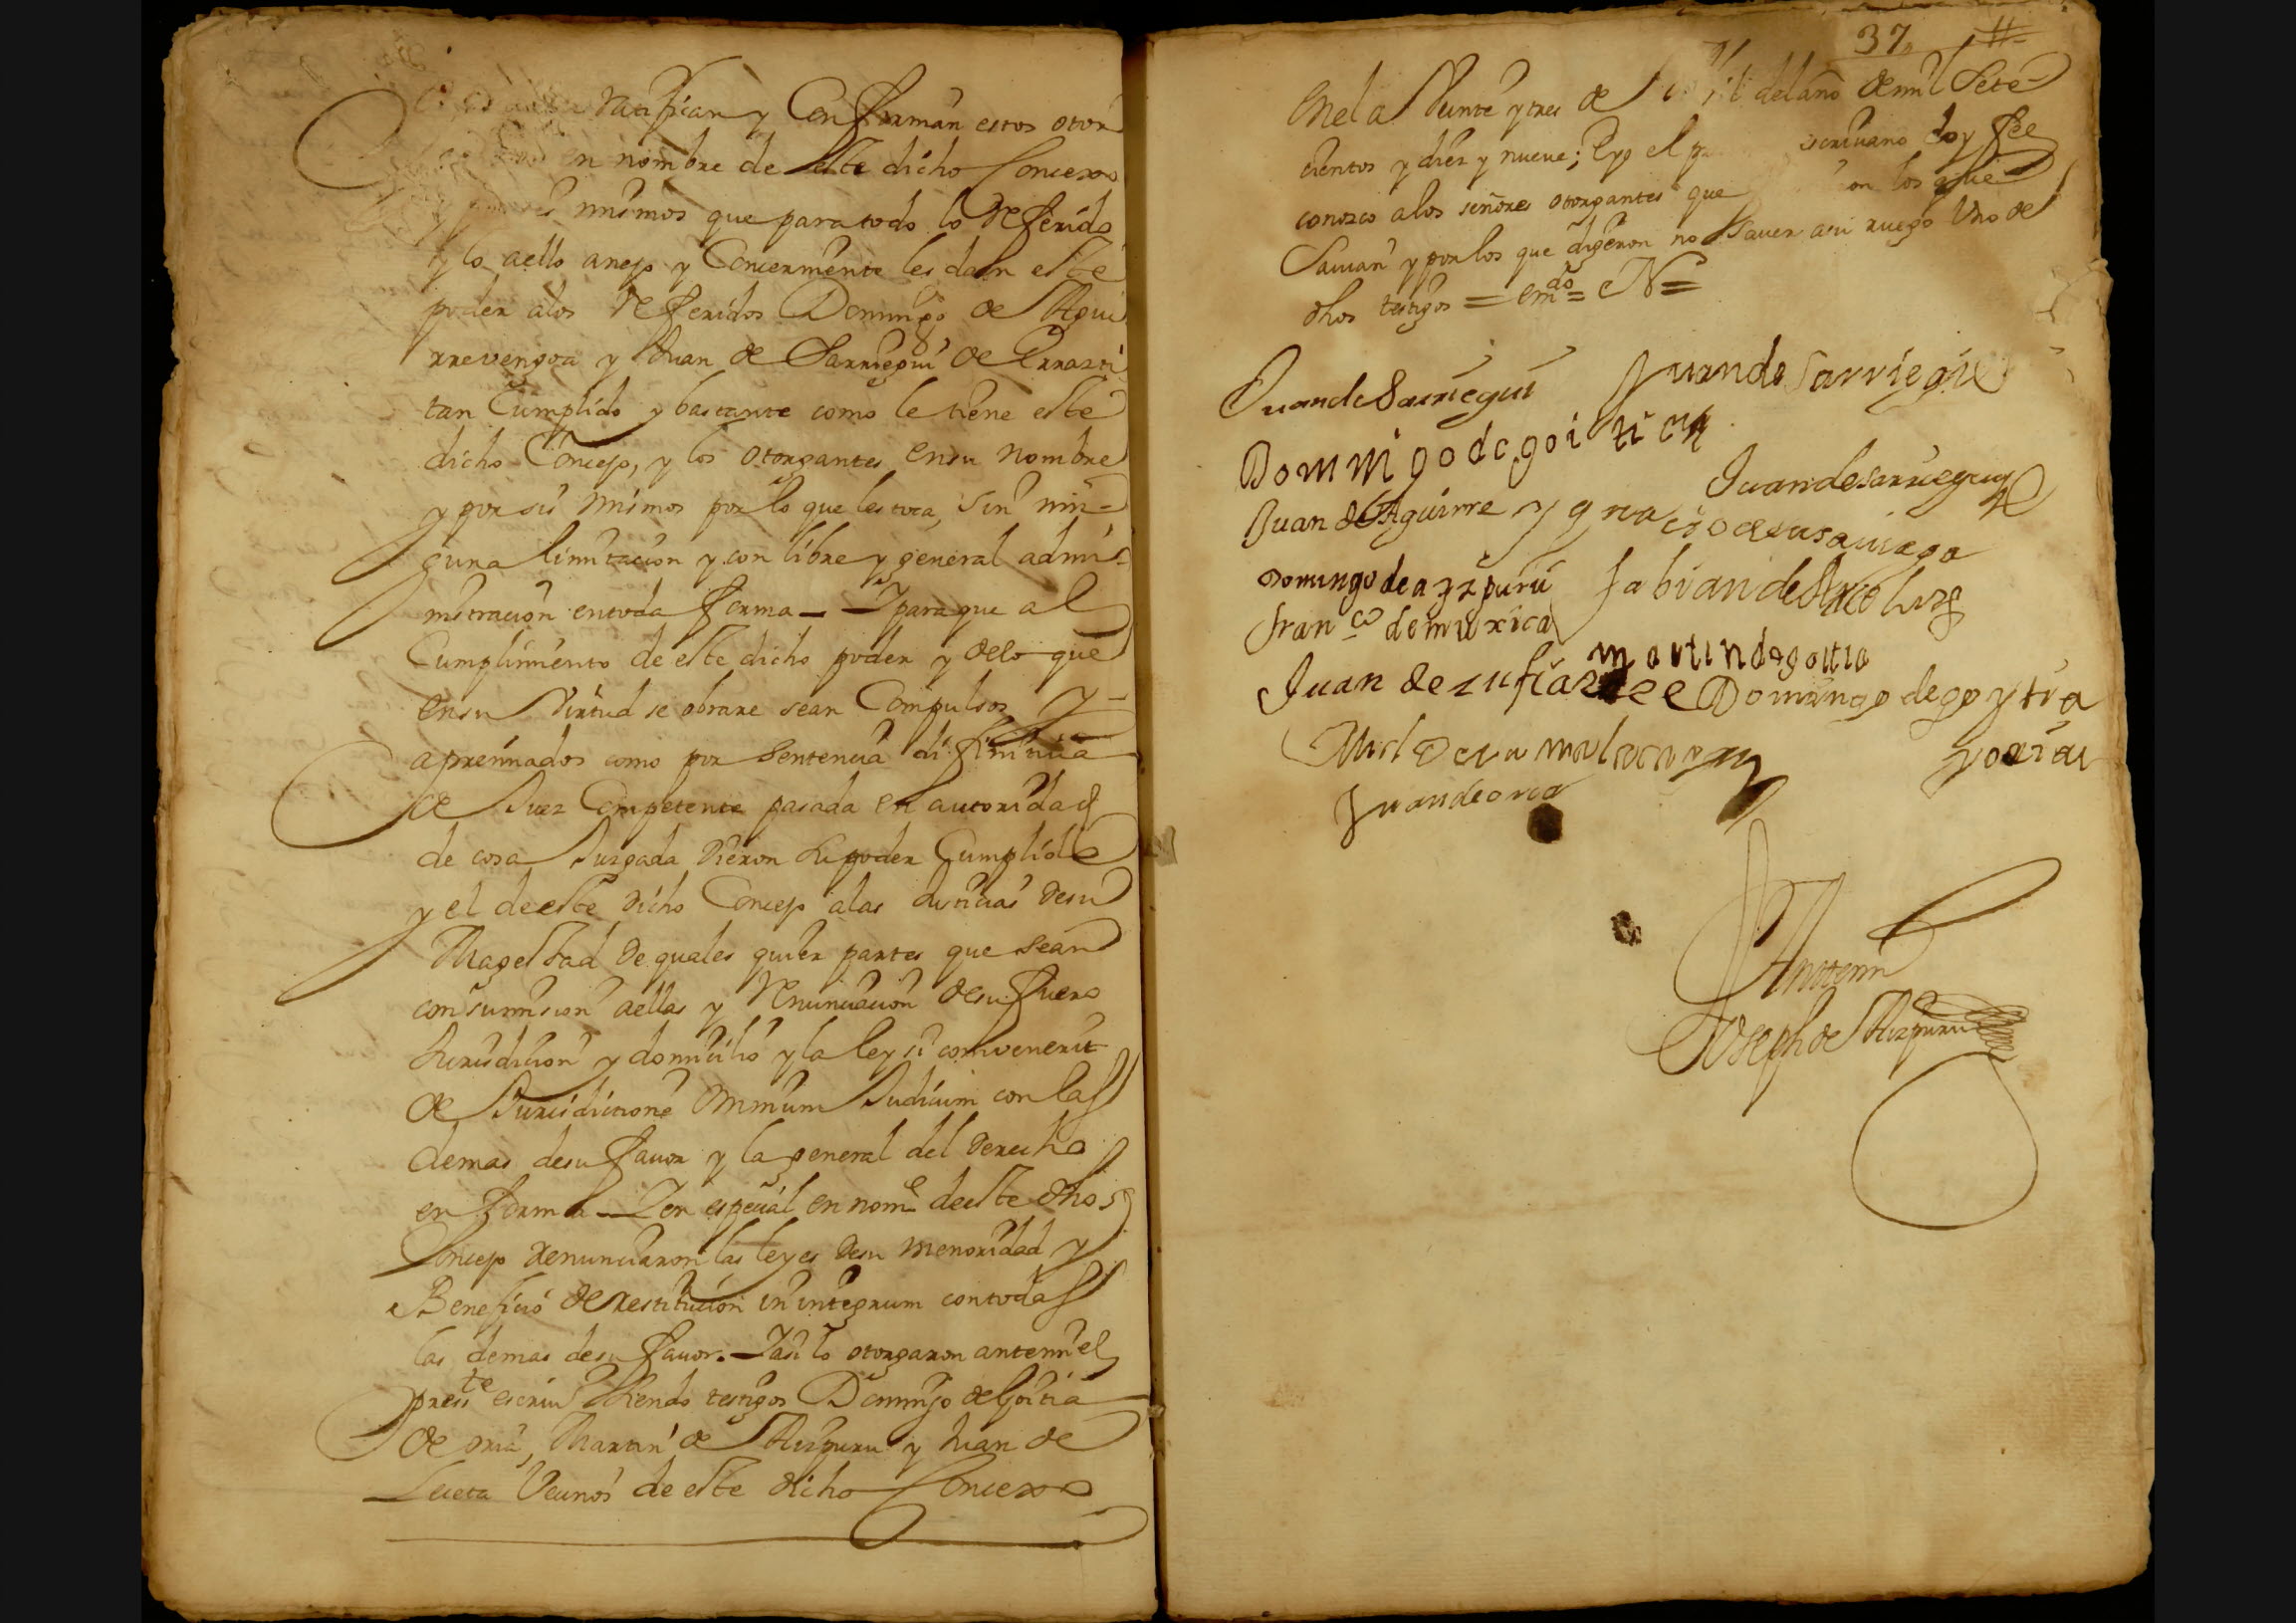 ratifican y Confirman estos otor
en nombre de este dicho Concexo
mismos que para todo lo Referido
y lo aello anejo y Concerniente les dan este
poder alos Referidos Domingo de Agui
rrevengoa y Juan de Sarriegui de Errazti
tan Cumplido y bastante como le tiene este
dicho Concejo, y los otorgantes ensu nombre
y por si mismos por lo que les toca, sin nin=
guna limitacion y con libre y general admi=
nistracion entoda forma _ Y para que al
Cumplimiento de este dicho poder y delo que
ensu Virtud se obrare sean Compulsos y=
apremiados como por Sentencia difinitiua
de Juez Competente pasada en autoridad
de cosa Juzgada Dieron su poder Cumplido
y el de este dicho Concejo alas Justicias desu
Magestad de quales quier partes que sean
con sumision aellas y Renunciacion desu fuero
Jurisdicion y domicilio y la ley si convenerit
de Jurisdictione Omnium Judicum con las
demas desu fauor y la general del derecho
en forma _ Y en especial en nome de este dho
Concejo renunciaron las leyes desu menoridad y
Beneficio de restitucion in integrum con todas
las demas desu fauor. _ Y asi lo otorgaron antemi el
preste escriuo siendo testigos Domingo de Goitia
de oria, Martin de Aizpuru y Juan de
Lueta Vecinos de este dicho Concexo
37 #
Veinte y tres de del año de mil Sete
cientos y diez y nueue; E yo el escriuano doy fee
conozco alos señores otorgantes que los que
Sauian y por los que digeron no Sauer asu ruego Uno de
dhos testigos = emdo = N =
Juan de Sarriegui Juan de Sarriegui
Domingo de goitia
Juan de Sarriegui
Juan de Aguirre ygnacio de
Domingo de azpuru fabian de
Franco de muxica
martin de goitia
Juan de Domingo de goytia
Juan de oria
Antemi
Joseph de Aizpuru